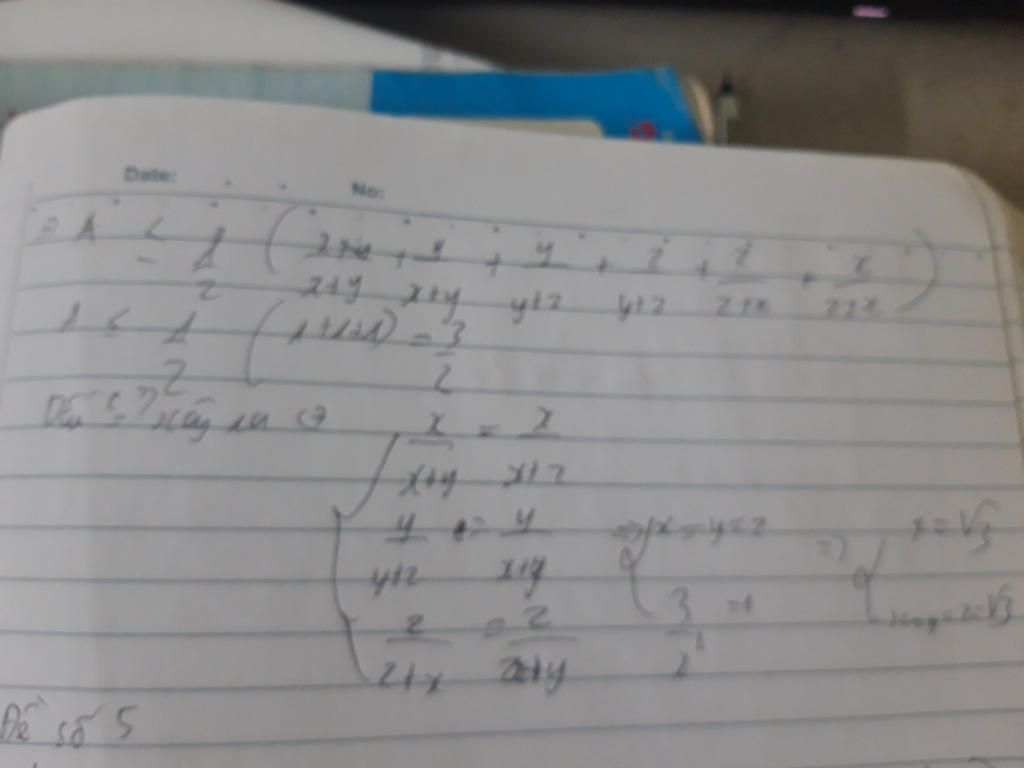 Date: No:
=> A ≤ 1/2 ( x/x+y + y/x+y + y/y+z + z/y+z + z/z+x + x/z+x )
A ≤ 1/2 (1+1+1) = 3/2
Dấu "=" xảy ra <=>
x/x+y = x/x+z
y/y+z = y/x+y => x=y=z => x=√3
z/z+x = z/z+y 3/x² =1 x=y=z=√3
Đề số 5